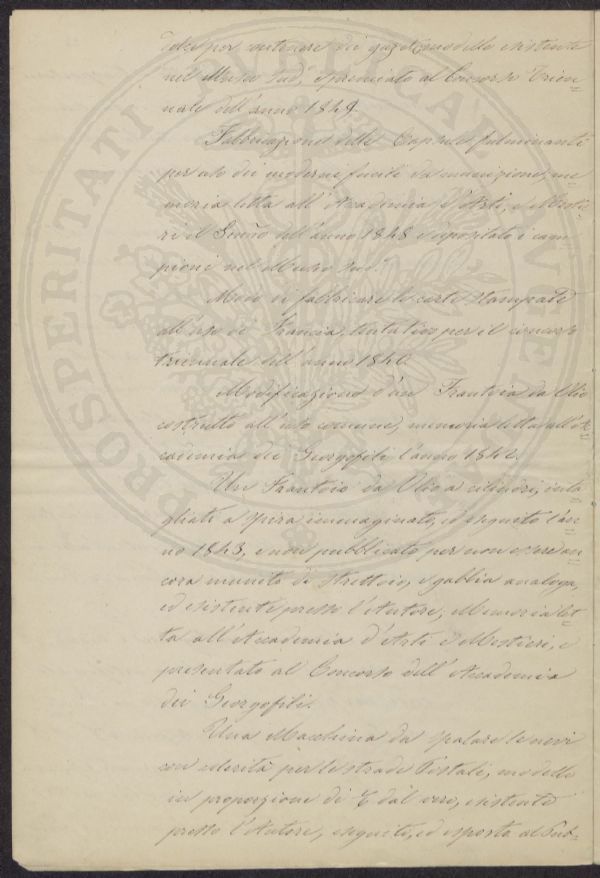 per contenere dei gaz, modello esistente
nel Museo sud.º, e premiato al Concorso Trien=
nale dell'anno 1849.
Fabbricazione delle Capsule fulminanti
per uso dei moderni fucili da munizione, me=
moria letta all'Accademia d'Arti, e Mestie=
ri il dell'anno 1848 e depositato i cam=
pioni nel Museo sud.º
Modo di fabbricare le carte stampate
all'uso di Francia, tentativo per il concorso
triennale dell'anno 1840.
Modificazione d'un Frantoio da Olio
costrutto all'uso comune, memoria letta all'Ac=
cademia dei Georgofili l'anno 1842.
Un Frantoio da Olio a cilindri, inta=
gliati a spira immaginato, ed eseguito l'an=
no 1843, e non pubblicato per non essere an=
cora munito di strettoio, e gabbia analoga,
ed esistente presso l'Autore, Memoria let=
ta all'Accademia d'Arti e Mestieri, e
presentato al Concorso dell'Accademia
dei Georgofili.
Una Macchina da spalare le nevi
con celerità per le strade Postali, modello
in proporzione di dal vero, esistente
presso l'Autore, eseguito, ed esposto al Pub=
PROSPERITATI PUBLICAE AUGENDAE